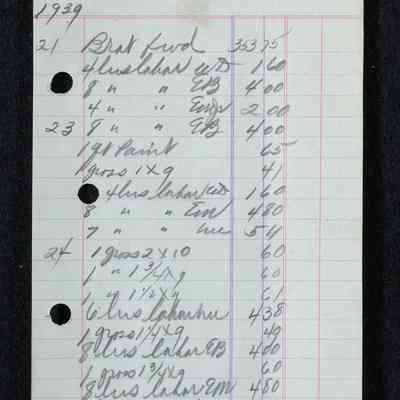 1939
21 Brot fwd 353 75
4 hrs labor WD 1 60
8 " " EB 4 00
4 " " Em 2 00
23 8 " " EB 4 00
1 qt Paint 65
1 gross 1 X 9 41
4 hrs labor WD 1 60
8 " " Em 4 80
7 " " 5 11
24 1 gross 2 X 10 60
1 " 1 3/4 X 9 60
1 " 1 1/2 X 9 61
6 hrs labor 4 38
1 gross 1 1/4 X 9 49
8 hrs labor EB 4 00
1 gross 1 3/4 X 9 60
8 hrs labor EM 4 80